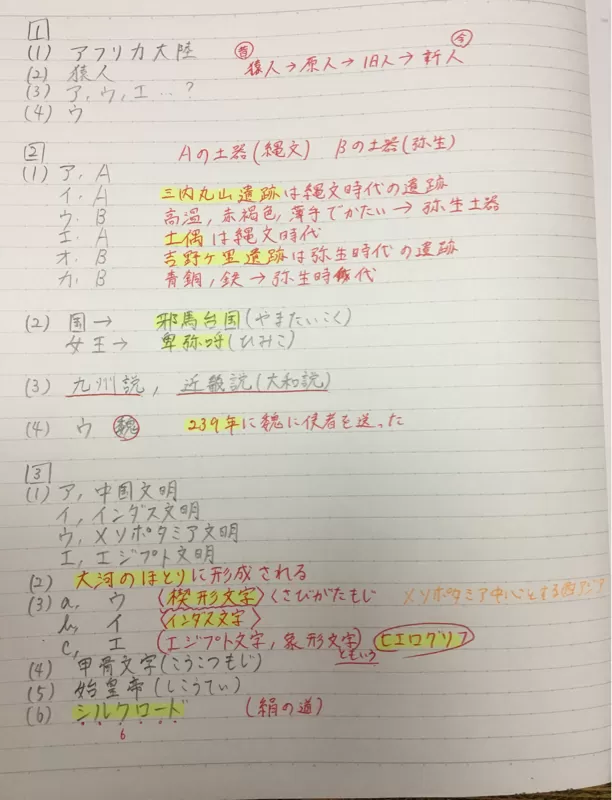 1
(1) アフリカ大陸 昔 今
(2) 猿人 猿人→原人→旧人→新人
(3) ア, ウ, エ…?
(4) ウ
2 Aの土器(縄文) Bの土器(弥生)
(1) ア. A
イ. A 三内丸山遺跡は縄文時代の遺跡
ウ. B 高温, 赤褐色, 薄手でかたい→弥生土器
エ. A 土偶は縄文時代
オ. B 吉野ヶ里遺跡は弥生時代の遺跡
カ. B 青銅, 鉄→弥生時代
(2) 国→ 邪馬台国(やまたいこく)
女王→ 卑弥呼(ひみこ)
(3) 九州説, 近畿説(大和説)
(4) ウ 魏 239年に魏に使者を送った
3
(1) ア, 中国文明
イ, インダス文明
ウ, メソポタミア文明
エ, エジプト文明
(2) 大河のほとりに形成される
(3) a, ウ (楔形文字)くさびがたもじ メソポタミア中心とする西アジア
b, イ インダス文字
c, エ (エジプト文字, 象形文字)ともいう ヒエログリフ
(4) 甲骨文字(こうこつもじ)
(5) 始皇帝(しこうてい)
(6) シルクロード (絹の道)
6